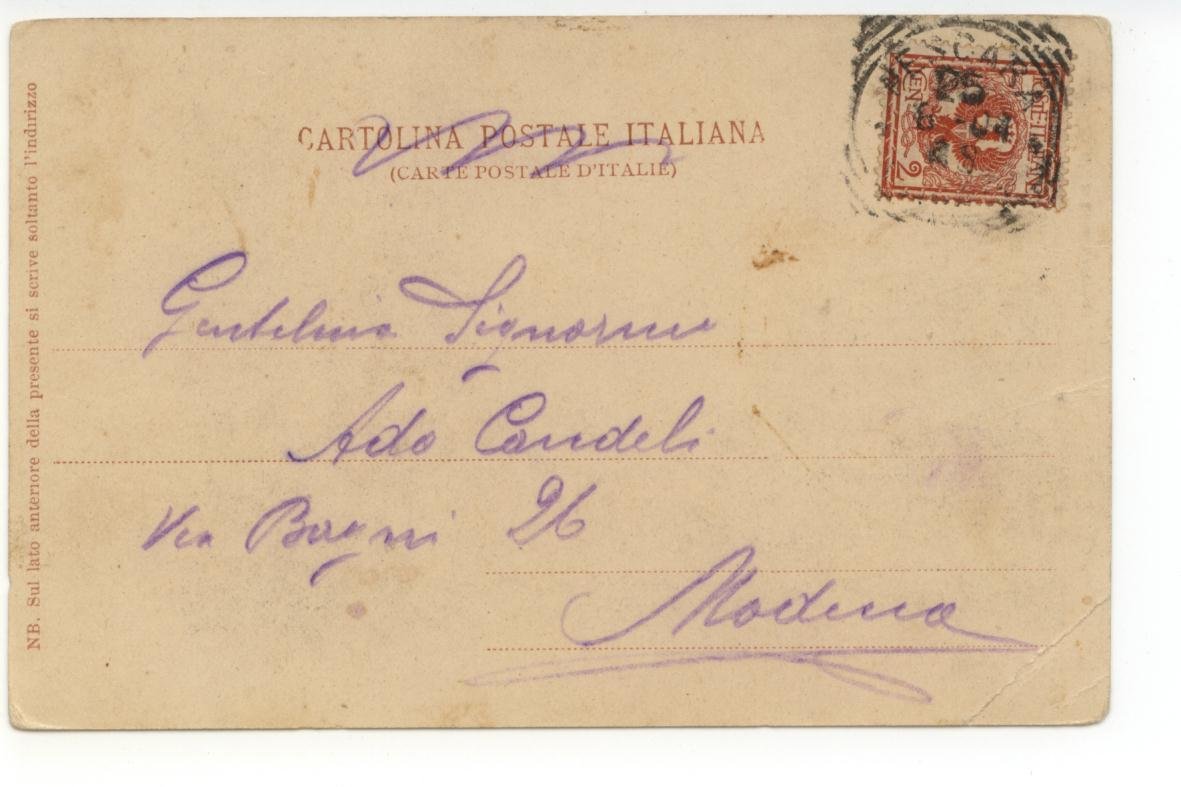 CARTOLINA POSTALE ITALIANA
(CARTE POSTALE D'ITALIE)
NB. Sul lato anteriore della presente si scrive soltanto l'indirizzo
PESCARA
POSTE ITALIANE
CEN 2
Gentilmo Signorino
Ado Candeli
Via Bagni 26
Modena